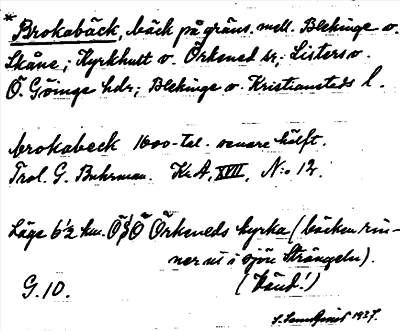 * Brokabäck, bäck på gräns. mell. Blekinge o.
Skåne; Kyrkhult o. Örkened sr, Listers o.
Ö. Göinge hdr; Blekinge o. Kristianstads l.
brokabeck 1600-tal. senare hälft.
Trol. G. Buhrman. KrA, XVIII, N:o 12.
Läge 6½ km. ÖSÖ Örkeneds kyrka (bäcken rin-
ner ut i sjön Strången).
G.10. (Vänd!)
1927.